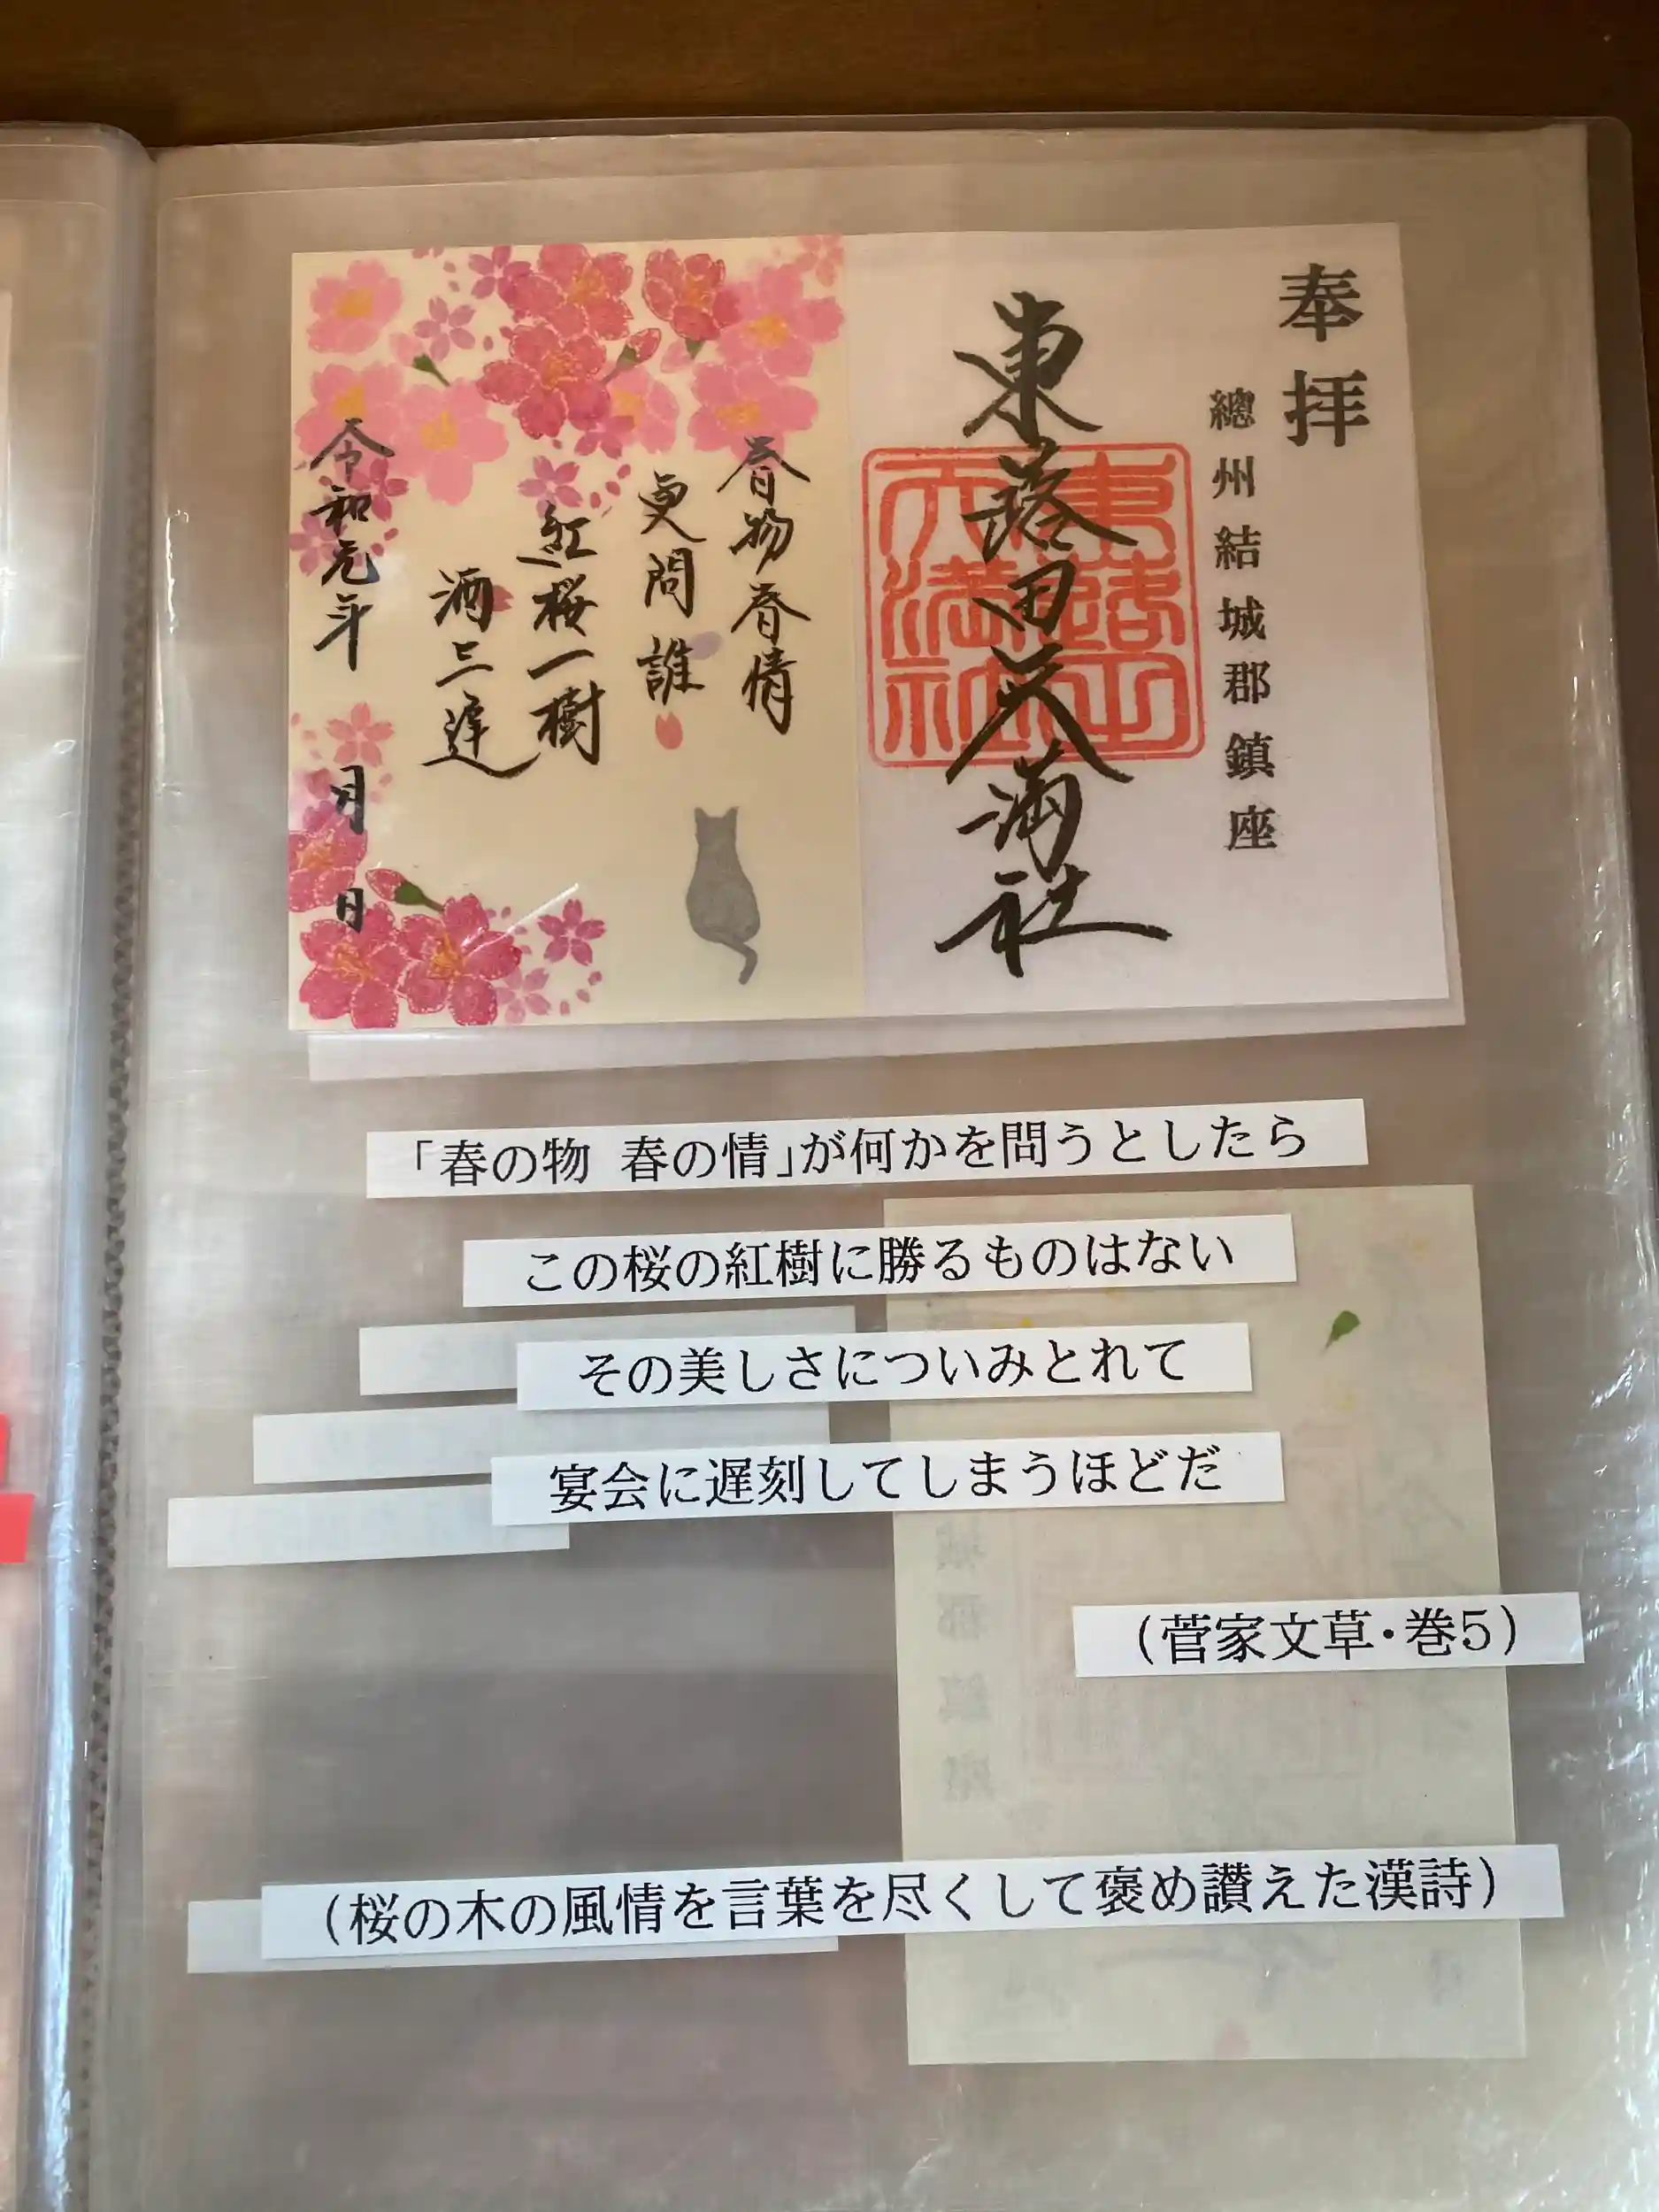 奉拝
總州結城郡鎮座
東蕗田天満社
春物春情
更問誰
紅桜一樹
酒三遅
令和元年 月 日
「春の物 春の情」が何かを問うとしたら
この桜の紅樹に勝るものはない
その美しさについみとれて
宴会に遅刻してしまうほどだ
（菅家文草・巻5）
（桜の木の風情を言葉を尽くして褒め讃えた漢詩）